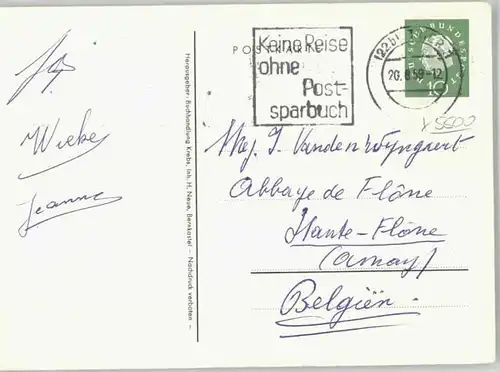 Wiebe
Jeanne
Herausgeber: Buchhandlung Krebs, Inh. H. Neue, Bernkastel – Nachdruck verboten –
POSTKARTE
Keine Reise
ohne
Post-
sparbuch
(22b)
20.8.59-12
10
Mej. J. Vanden Wyngaert
Abbaye de Flône
Haute-Flône
(Amay)
Belgiën.